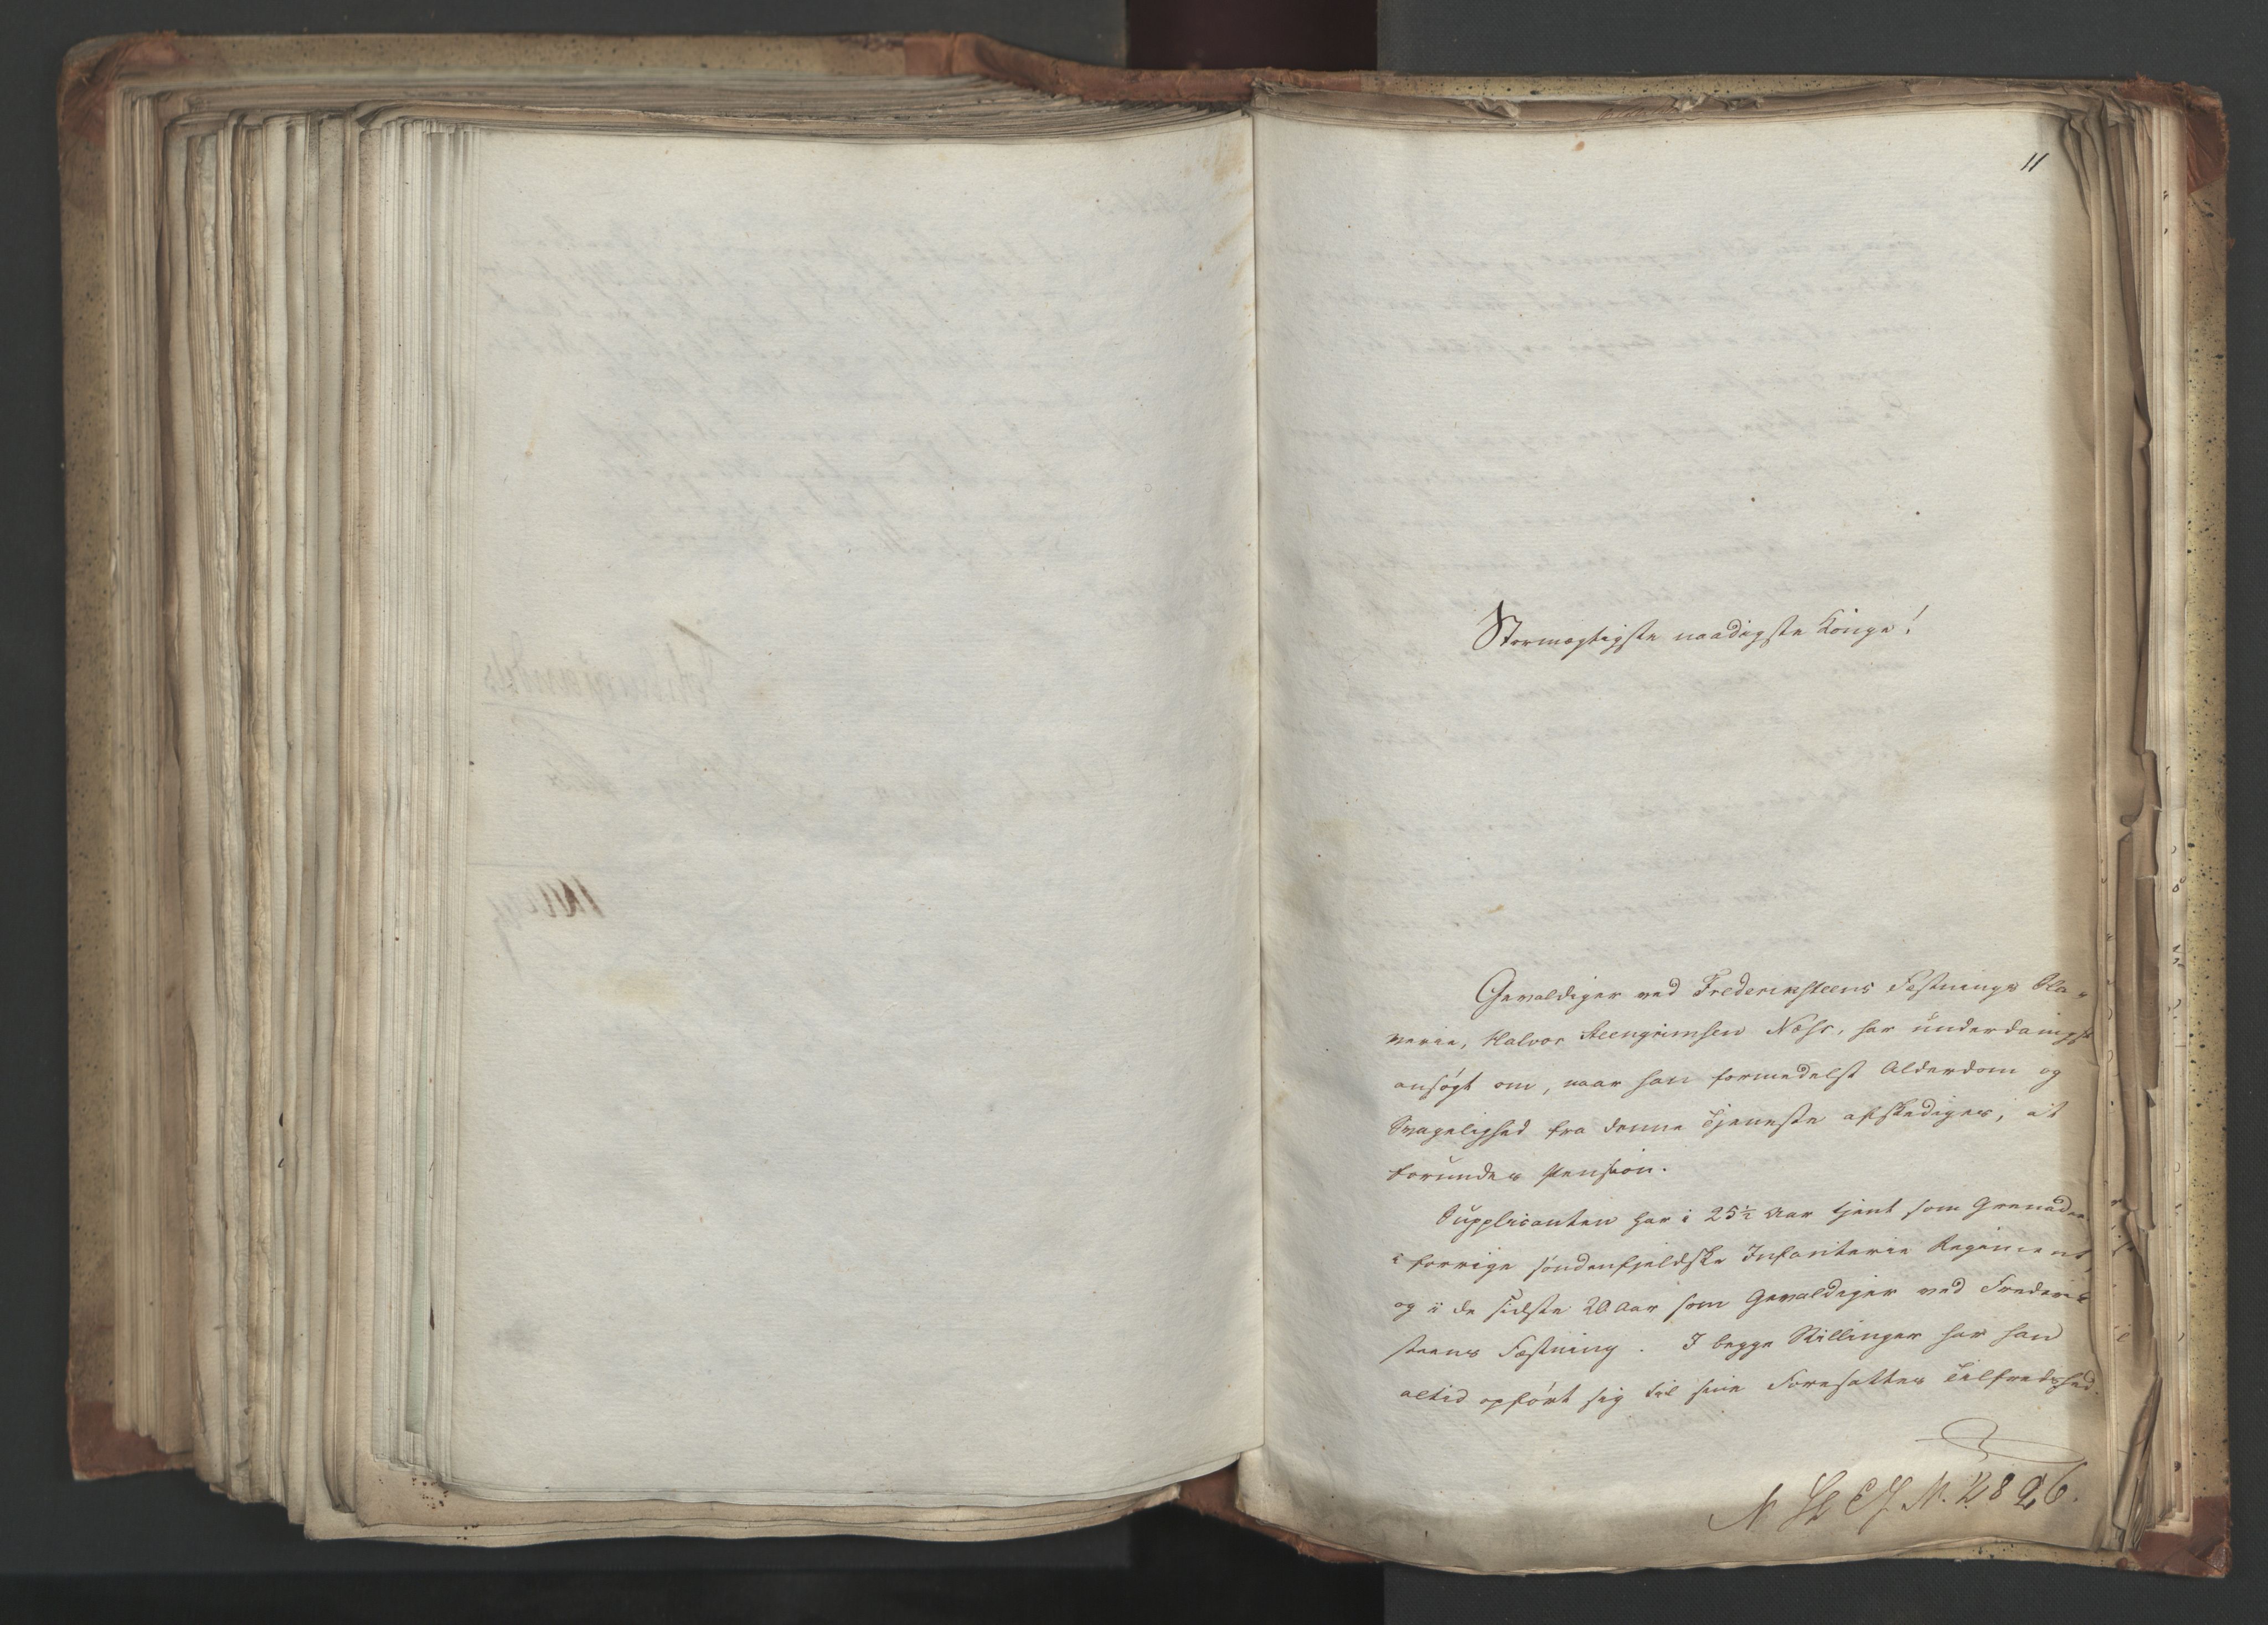 11
Stormægtigste naadigste Konge!
Gevaldiger ved Frederiksteens Fæstnings Sla-
verie, Halvor Steengrimsen Næss, har underdanigst
ansøgt om, naar han formedelst Alderdom og
Svagelighed fra denne Tjeneste afskediges, at
forundes Pension.
Supplicanten har i 25½ Aar tjent som Grenadeer
i forrige søndenfjeldske Infanterie Regiment,
og i de sidste 20 Aar som Gevaldiger ved Frederik
steens Fæstning. I begge Stillinger har han
altid opført sig til sine Foresattes Tilfredshed.